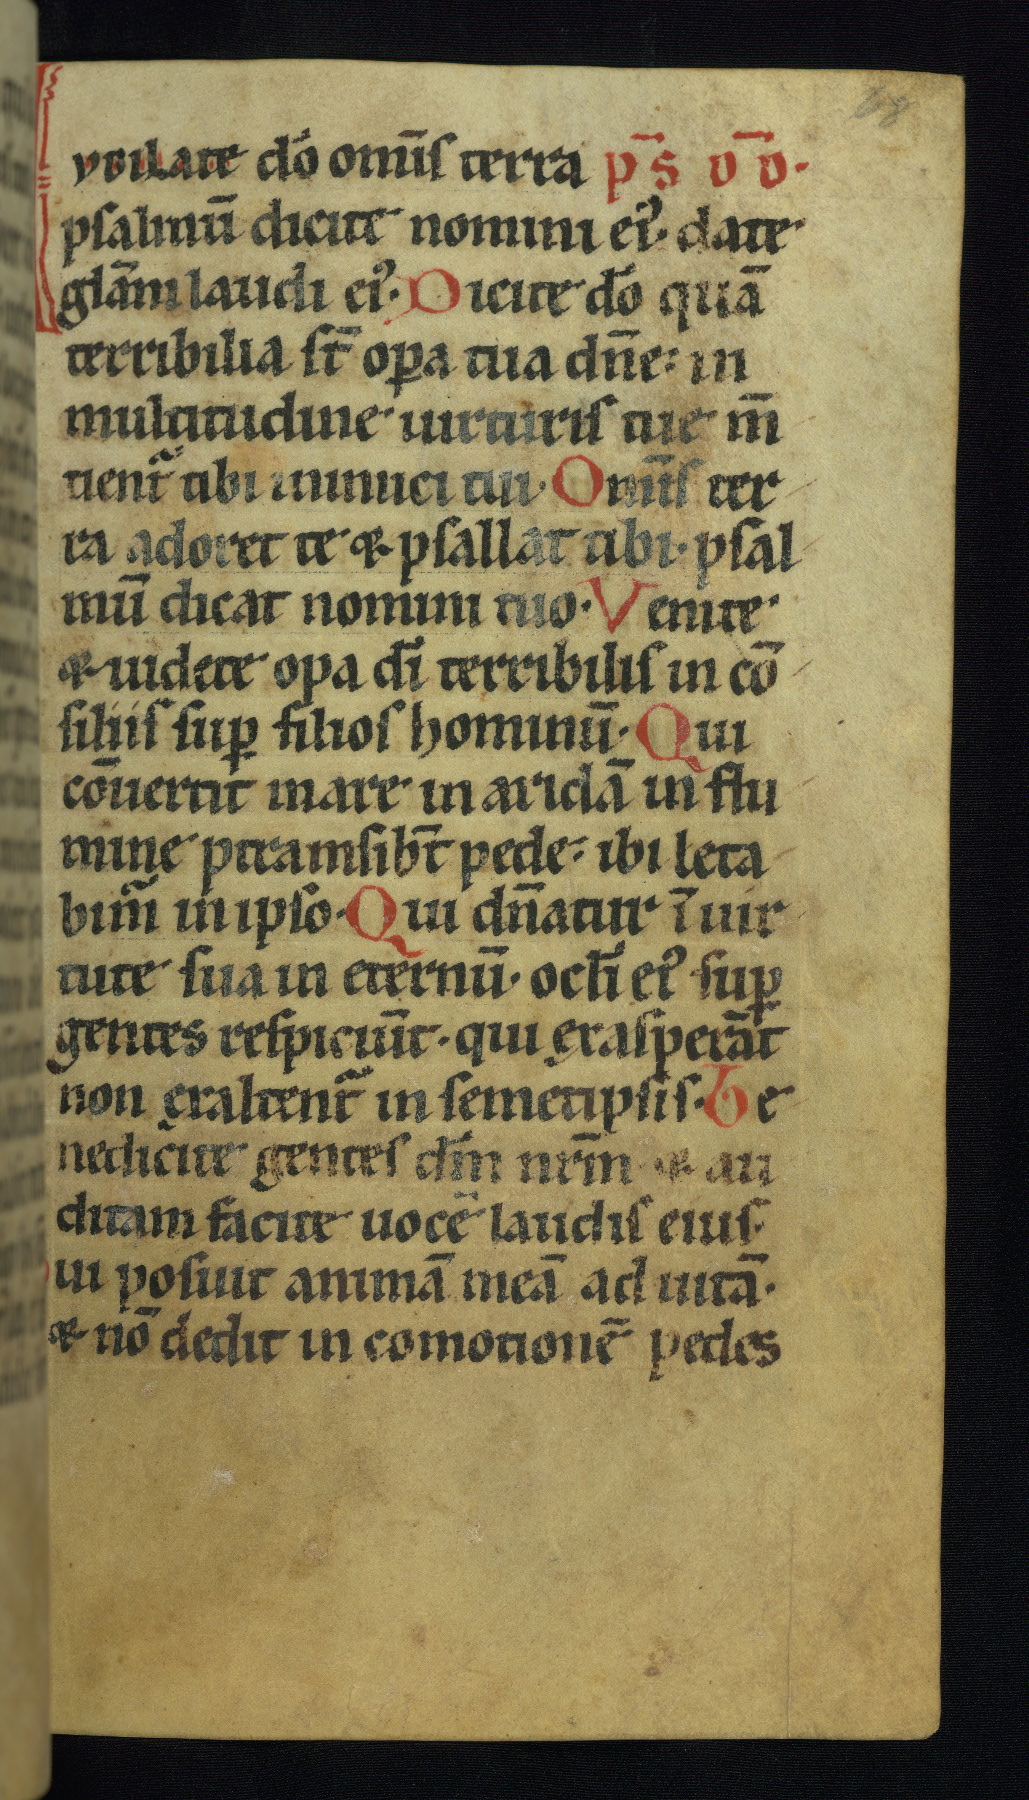 68
Iubilate dō omīs terra p̄s v̄ v̄.
psalmū dicite nomini eiꝰ. date
glām laudi eiꝰ. Dicite dō quā
terribilia st̄ oꝑa tua dn̄e: in
multitudine uirtutis tue m̄
tient̃ tibi inimici tui. Omīs ter
ra adoret te & psallat tibi. psal
mū dicat nomini tuo. Venite
& uidete opa di terribilis in cō
siliis suꝑ filios hominū. Qui
cōuertit mare in aridā in flu
mine ptramsibt̄ pede: ibi leta
bim̃ in ipso. Qui dn̄atur ī uir
tute sua in eternū. ocli eiꝰ suꝑ
gentes respiciūt. qui exasperāt
non exaltent̃ in semetipsis. Be
nedicite gentes dm̄ nrm̄ & au
ditam facite uocē laudis eius.
Qui posuit animā meā ad uitā.
& nō dedit in comotionē pedes